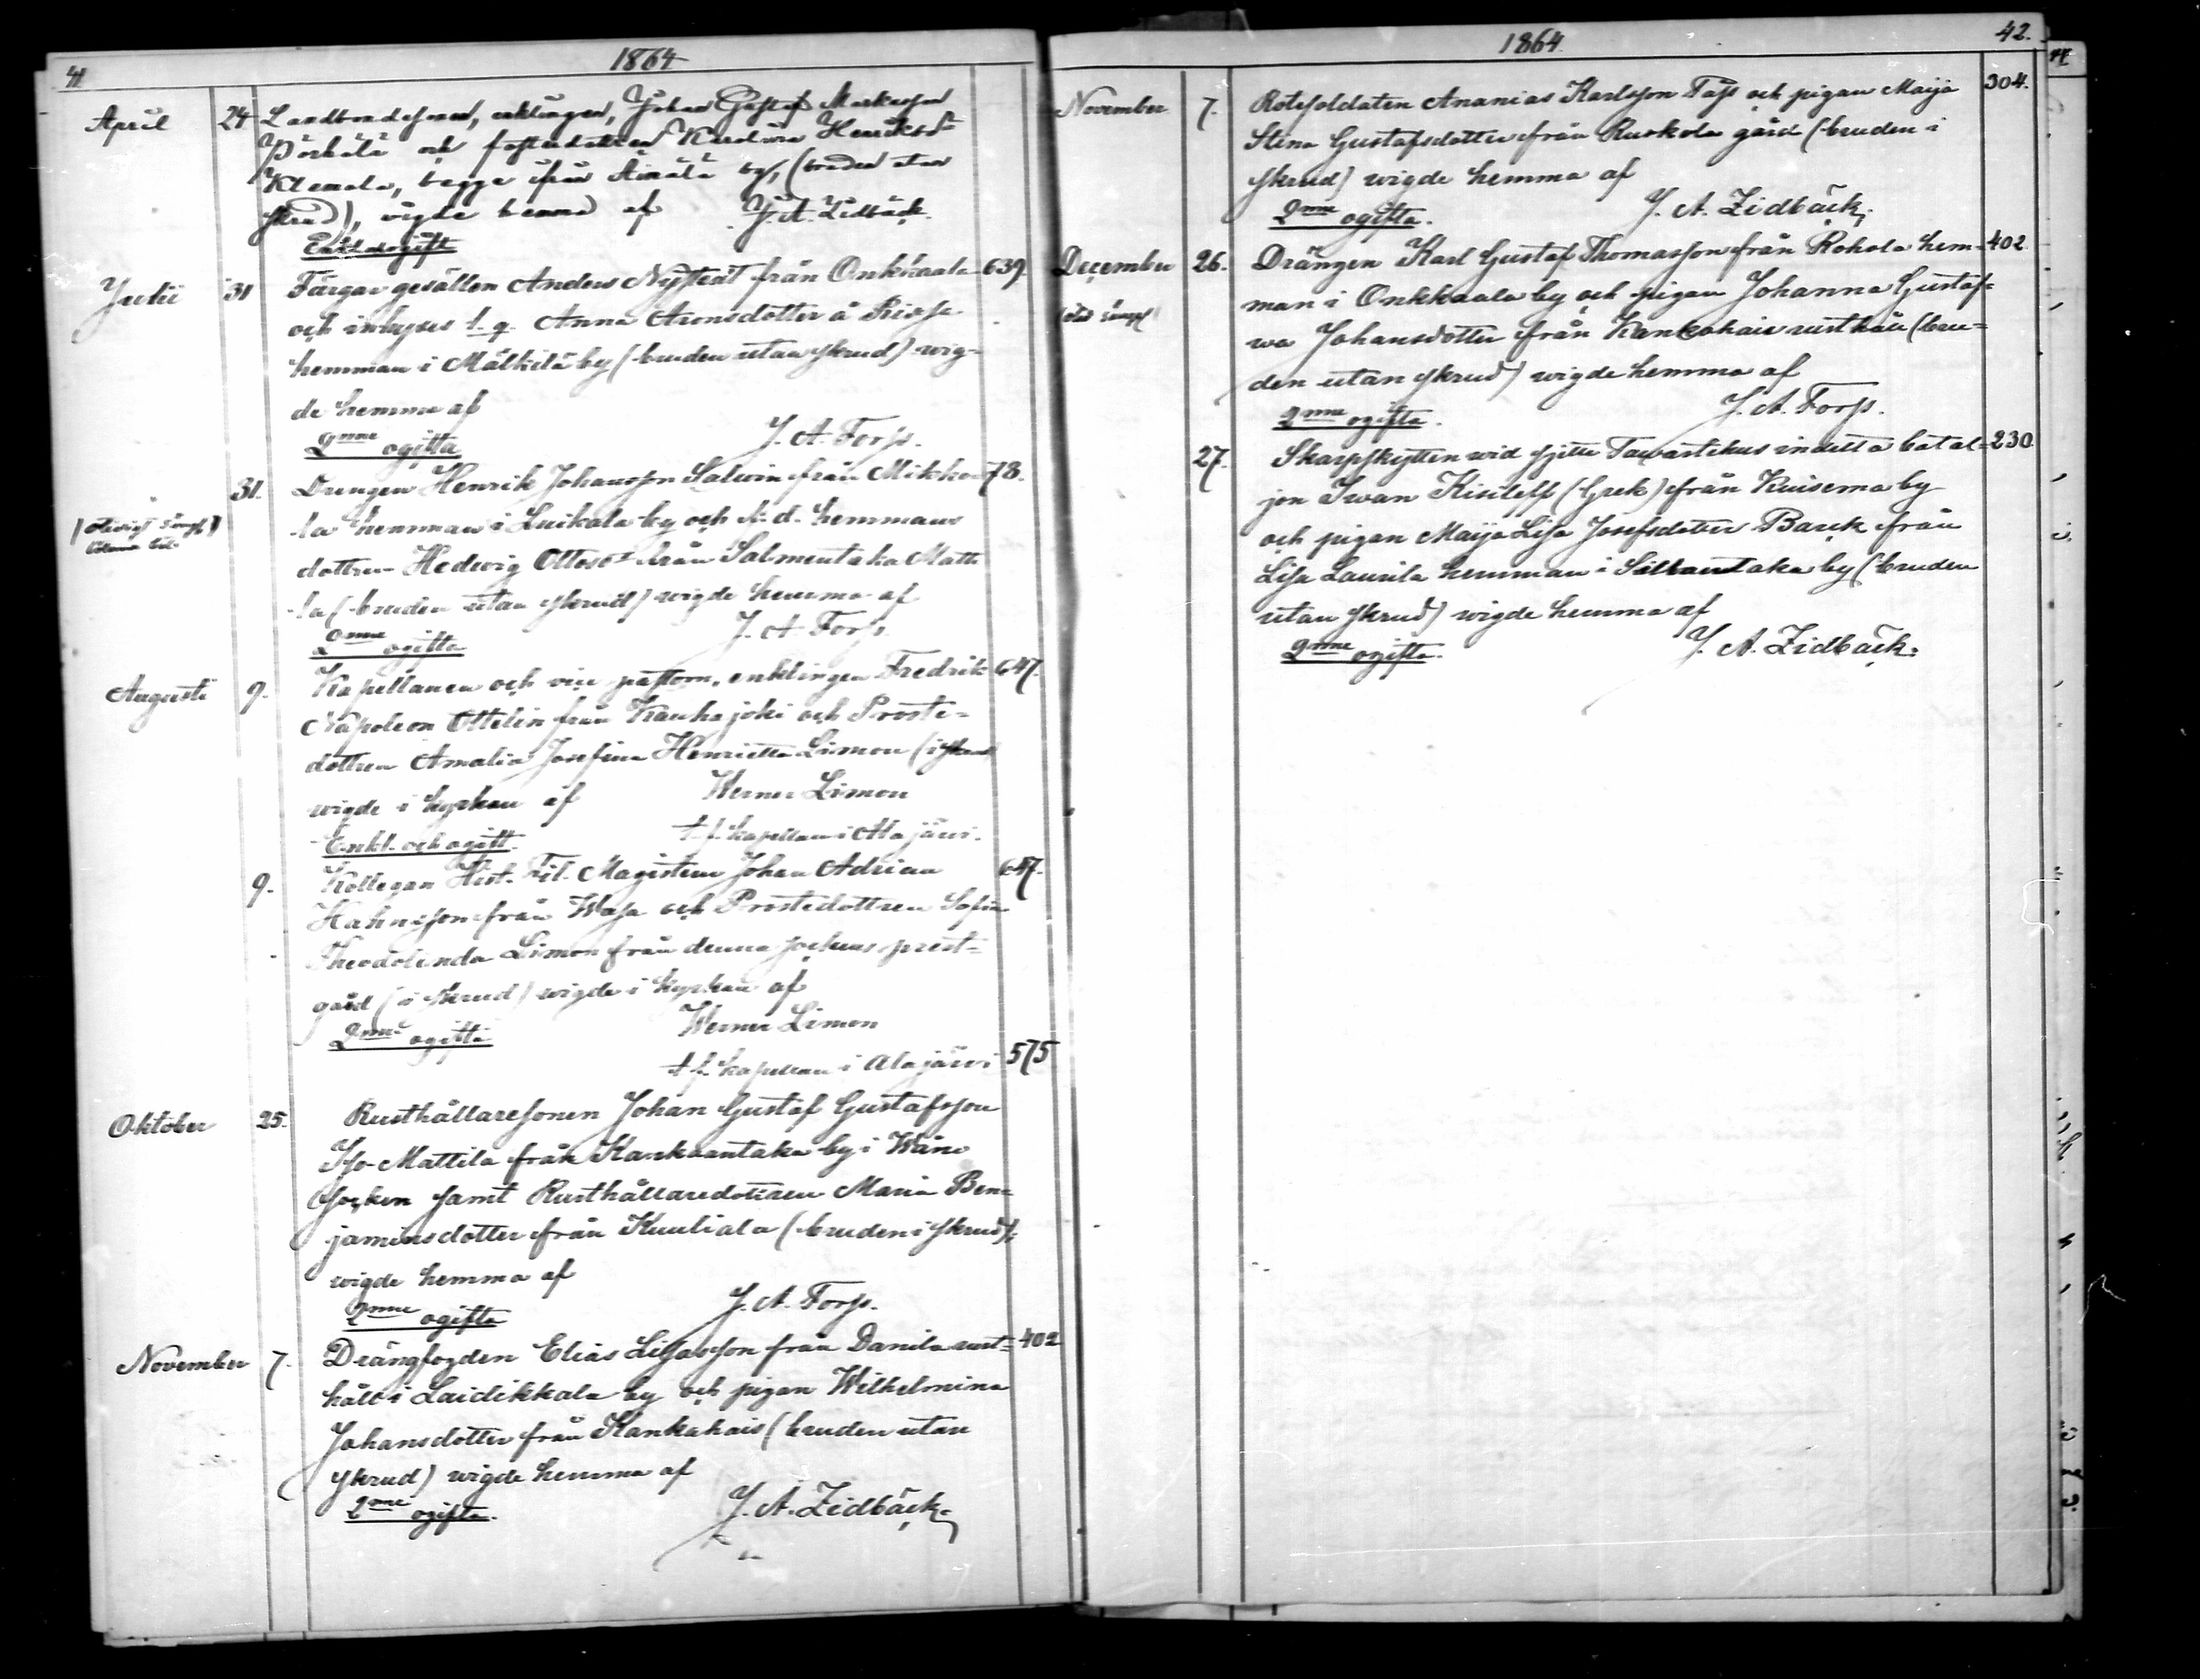 41
1864
April 24 Landbondesonen, enklingen, Johan Gustaf Markusson
Pörkälä och fosterdottren Karolina Henriksdr
Klemola, begge ifrån Äimälä by, (bruden utan
skrud), vigde hemma af J. A. Lidbäck.
Enkl. ogift
Julii 31 Färgar gesällen Anders Nyqvist från Onkkaala 639
och inhyses t. q. Anna Aronsdotter å
hemman i Mälkilä by (bruden utan skrud) wig-
de hemma af
2nne ogifta J. A. Forss.
31. Drengen Henrik Johansson Salwin från Mikko- 78.
la hemman i Luikala by och hemmans
dottren Hedwig Ottosdr från Salmentaka Matti-
la (bruden utan skrud) wigde hemma af
2nne ogifta J. A. Forss
Augusti 9. Kapellanen och vice pastorn, enklingen Fredrik 647.
Napoleon Ottelin från Kauhajoki och Proste-
dottren Amalia Josefina Henrietta Limon (i skrud)
wigde i kyrkan af Werner Limon
Enkl. och ogift. t. f. kapellan i Alajärvi.
9. Kollegan Hist. Fil. Magistern Johan Adrian 647.
Hahnsson från Wasa och Prostedottren Sofia
Theodolinda Limon från denna sockens prest-
gård (i skrud) wigde i kyrkan af
2nne ogifta Werner Limon
t f. kapellan i Alajärvi 575
Oktober 25. Rusthållaresonen Johan Gustaf Gustafsson
Iso-Mattila från Kankaantaka by i Wånå
socken samt Rusthållaredottren Maria Ben-
jaminsdotter från Kuuliala (bruden i skrud);
wigde hemma af
2nne ogifta J. A. Forss.
November 7. Drängfogden Elias Lisasson från Danila rust- 402
håll i Laidikkala by och pigan Wilhelmina
Johansdotter från Kankahais (bruden utan
skrud) wigde hemma af
2nne ogifta. J. A. Lidbäck.
1864 42.
November 7. Rotesoldaten Ananias Karlsson Tass och pigan Maija 304.
Stina Gustafsdotter från Ruokola gård (bruden i
skrud) wigde hemma af
2nne ogifta. J. A. Lidbäck.
December 26. Drängen Karl Gustaf Thomasson från Rokola hem- 402
man i Onkkaala by och pigan Johanna Gustaf-
wa Johansdotter från Kankahais rusthåll (bru-
den utan skrud) wigde hemma af
2nne ogifta. J. A. Forss.
27. Skarpskytten wid sjette Tawastehus indelta batal- 230
jon Iwan Kisileff (Grek) från Kuisema by
och pigan Maija Lisa Josefsdotter Barck från
Lisa Laurila hemman i Sillantaka by (bruden
utan skrud) wigde hemma af
2nne ogifta. J. A. Lidbäck.